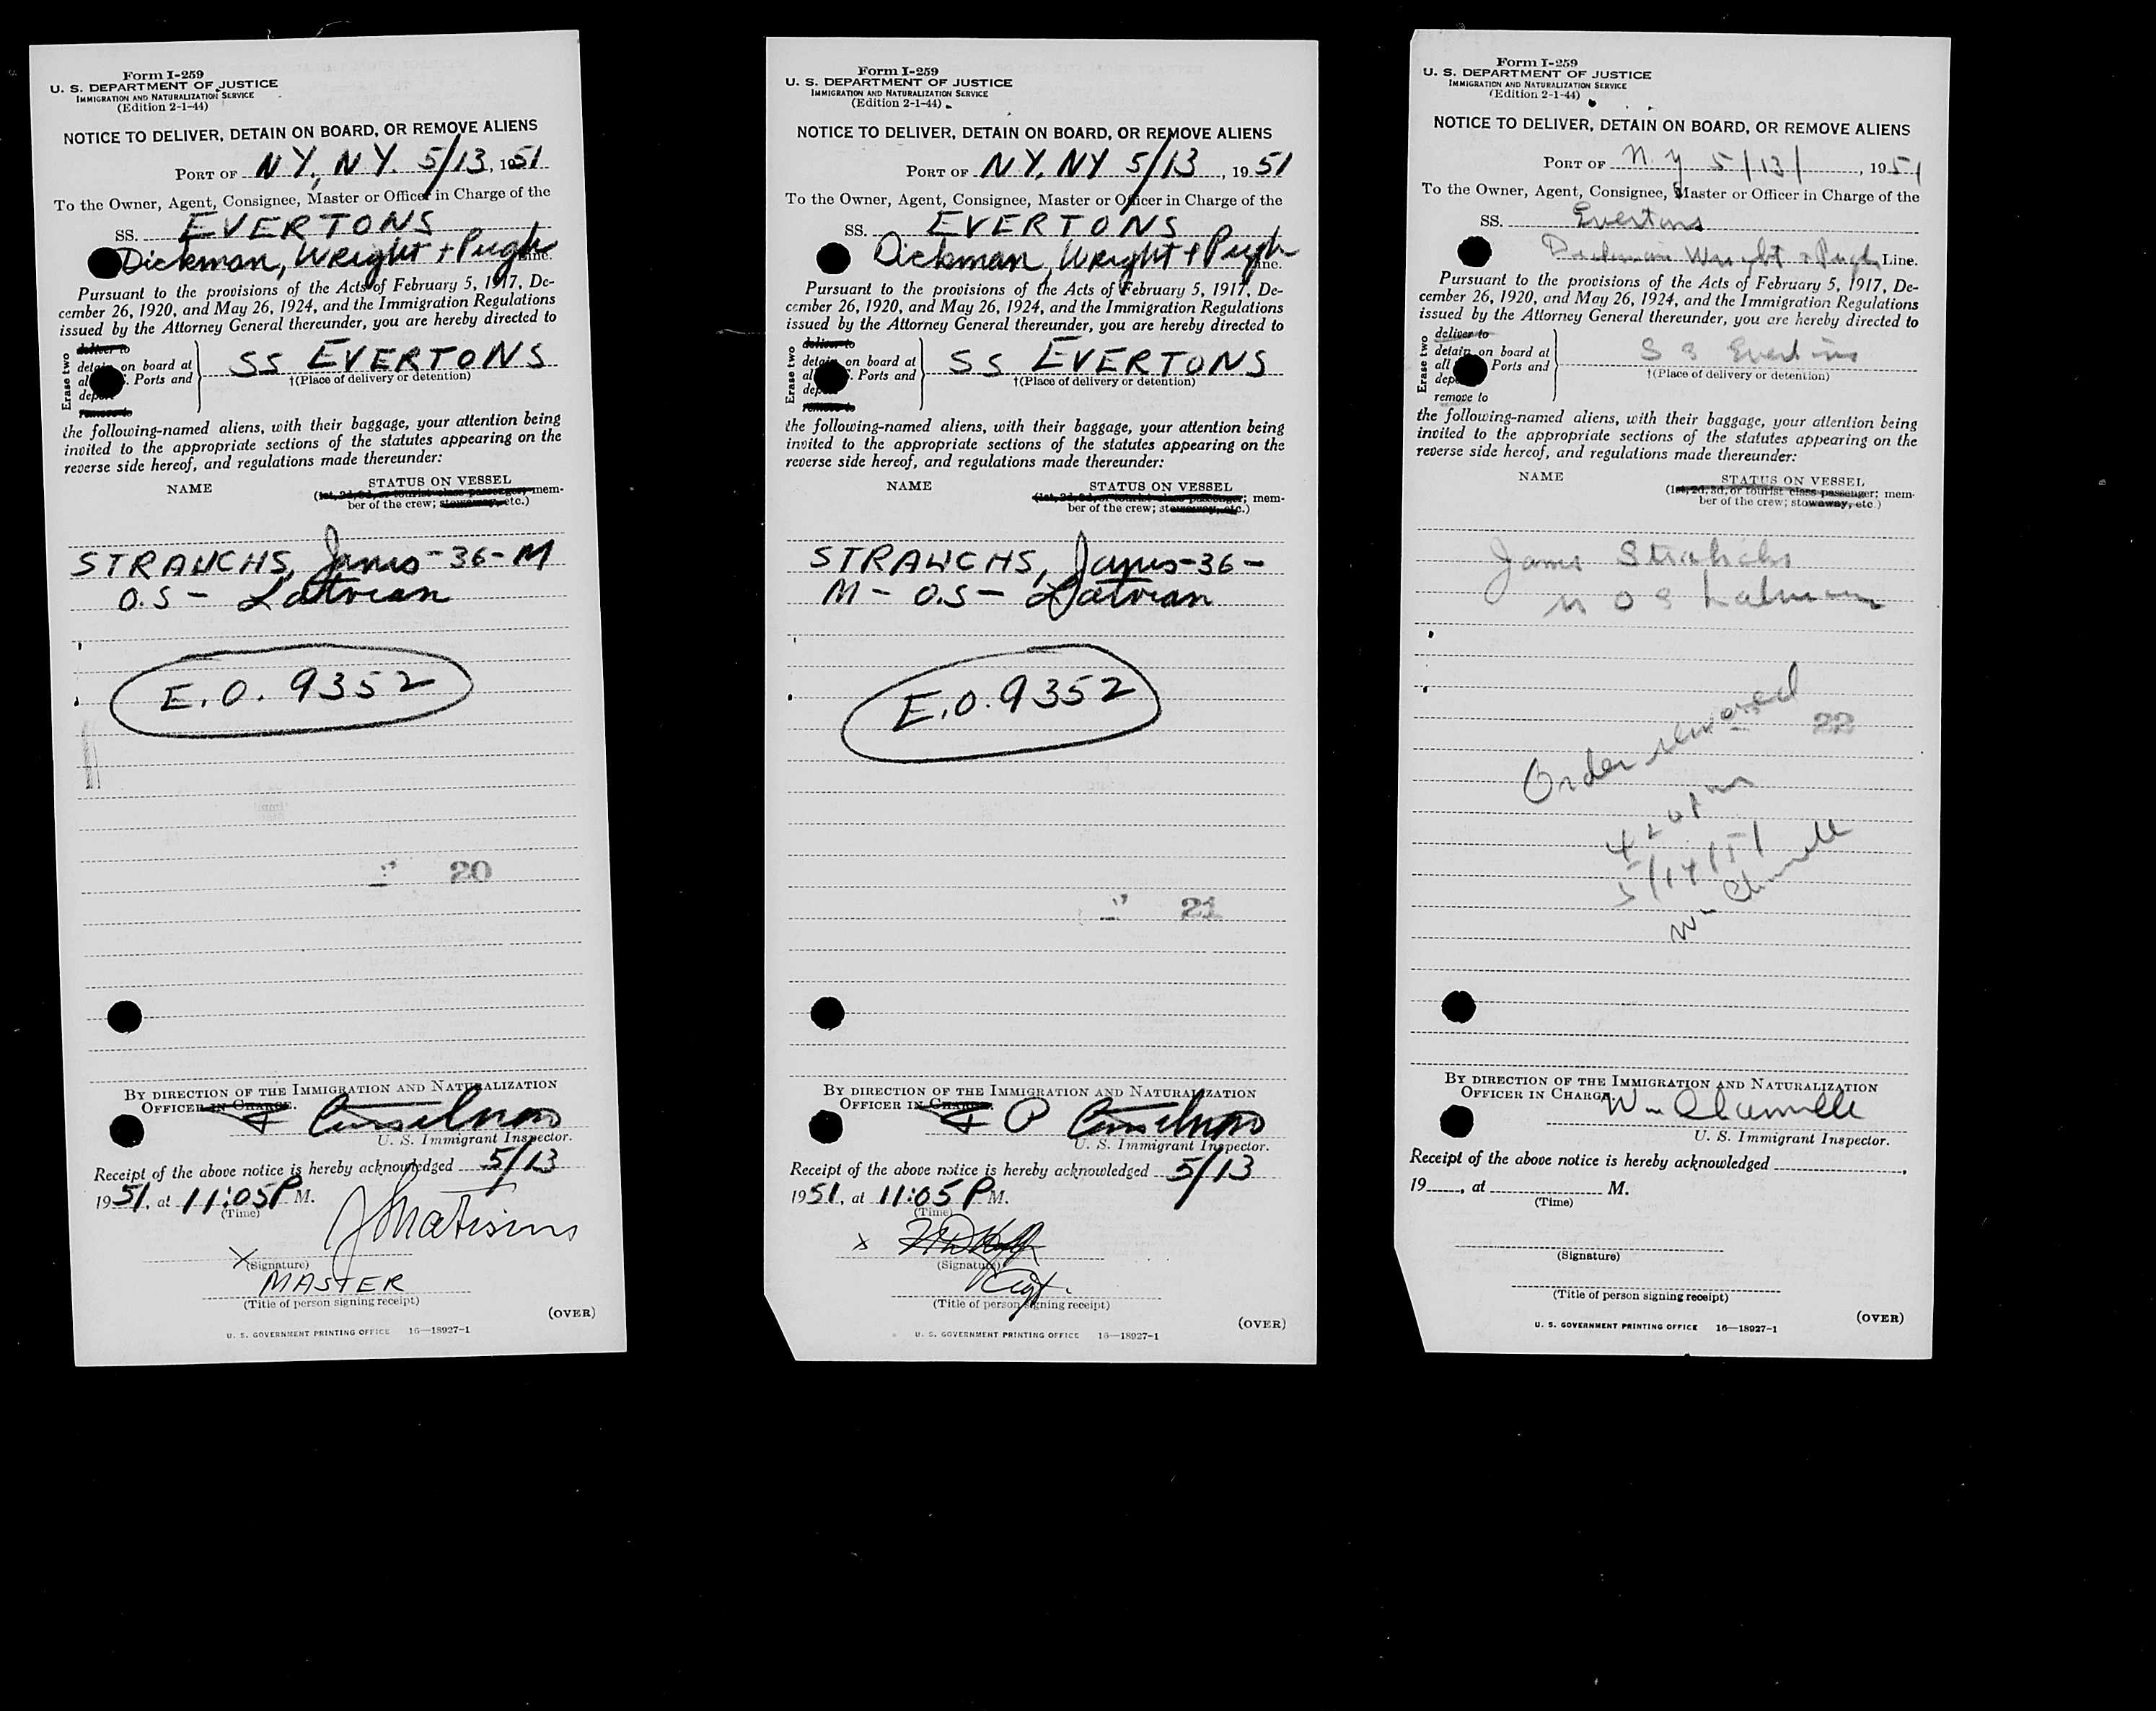 Form I-259
U. S. DEPARTMENT OF JUSTICE
IMMIGRATION AND NATURALIZATION SERVICE
(Edition 2-1-44)
NOTICE TO DELIVER, DETAIN ON BOARD, OR REMOVE ALIENS
PORT OF N Y, N Y. 5/13, 1951
To the Owner, Agent, Consignee, Master or Officer in Charge of the
SS. EVERTONS
Dickman, Wright + Pugh Line.
Pursuant to the provisions of the Acts of February 5, 1917, De-
cember 26, 1920, and May 26, 1924, and the Immigration Regulations
issued by the Attorney General thereunder, you are hereby directed to
Erase two
deliver to
detain on board at
al . Ports and
deport
remove to
SS EVERTONS
†(Place of delivery or detention)
the following-named aliens, with their baggage, your attention being
invited to the appropriate sections of the statutes appearing on the
reverse side hereof, and regulations made thereunder:
NAME
STATUS ON VESSEL
(1st, 2d, 3d, or tourist class passenger; mem-
ber of the crew; stowaway, etc.)
STRAUCHS, Janis - 36 - M
O.S - Latvian
E.O. 9352
20
BY DIRECTION OF THE IMMIGRATION AND NATURALIZATION
OFFICER IN CHARGE.
U. S. Immigrant Inspector.
Receipt of the above notice is hereby acknowledged 5/13
1951, at 11:05 P M.
(Time)
X JMatisins
(Signature)
MASTER
(Title of person signing receipt)
(OVER)
U. S. GOVERNMENT PRINTING OFFICE 16—18927-1
Form I-259
U. S. DEPARTMENT OF JUSTICE
IMMIGRATION AND NATURALIZATION SERVICE
(Edition 2-1-44)
NOTICE TO DELIVER, DETAIN ON BOARD, OR REMOVE ALIENS
PORT OF N Y, N Y 5/13, 1951
To the Owner, Agent, Consignee, Master or Officer in Charge of the
SS. EVERTONS
Dickman, Wright + Pugh Line.
Pursuant to the provisions of the Acts of February 5, 1917, De-
cember 26, 1920, and May 26, 1924, and the Immigration Regulations
issued by the Attorney General thereunder, you are hereby directed to
Erase two
deliver to
detain on board at
al . Ports and
deport
remove to
SS EVERTONS
†(Place of delivery or detention)
the following-named aliens, with their baggage, your attention being
invited to the appropriate sections of the statutes appearing on the
reverse side hereof, and regulations made thereunder:
NAME
STATUS ON VESSEL
(1st, 2d, 3d, or tourist class passenger; mem-
ber of the crew; stowaway, etc.)
STRAUCHS, Janis - 36 -
M - O.S - Latvian
E.O. 9352
21
BY DIRECTION OF THE IMMIGRATION AND NATURALIZATION
OFFICER IN CHARGE.
U. S. Immigrant Inspector.
Receipt of the above notice is hereby acknowledged 5/13
1951, at 11:05 P M.
(Time)
X
(Signature)
(Title of person signing receipt)
(OVER)
U. S. GOVERNMENT PRINTING OFFICE 16—18927-1
Form I-259
U. S. DEPARTMENT OF JUSTICE
IMMIGRATION AND NATURALIZATION SERVICE
(Edition 2-1-44)
NOTICE TO DELIVER, DETAIN ON BOARD, OR REMOVE ALIENS
PORT OF N. Y 5/13/, 1951
To the Owner, Agent, Consignee, Master or Officer in Charge of the
SS. Evertons
Dickman Wright + Pugh Line.
Pursuant to the provisions of the Acts of February 5, 1917, De-
cember 26, 1920, and May 26, 1924, and the Immigration Regulations
issued by the Attorney General thereunder, you are hereby directed to
Erase two
deliver to
detain on board at
all Ports and
deport
remove to
SS Evertons
†(Place of delivery or detention)
the following-named aliens, with their baggage, your attention being
invited to the appropriate sections of the statutes appearing on the
reverse side hereof, and regulations made thereunder:
NAME
STATUS ON VESSEL
(1st, 2d, 3d, or tourist class passenger; mem-
ber of the crew; stowaway, etc.)
Janis Strauchs
M O S Latvian
22
Order removed
5/14/51
Wm
BY DIRECTION OF THE IMMIGRATION AND NATURALIZATION
OFFICER IN CHARGE.
Wm
U. S. Immigrant Inspector.
Receipt of the above notice is hereby acknowledged
19 , at M.
(Time)
(Signature)
(Title of person signing receipt)
(OVER)
U. S. GOVERNMENT PRINTING OFFICE 16—18927-1